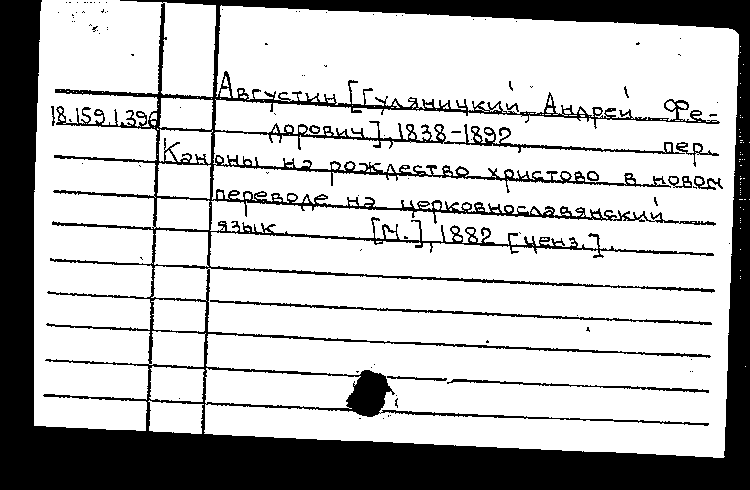 Августин [Гуляницкий, Андрей Фе-
18.159.1.396
дорович], 1838-1892, пер.
Каноны на рождество христово в новом
переводе на церковнославянский
язык. [М.], 1882 [ценз.].